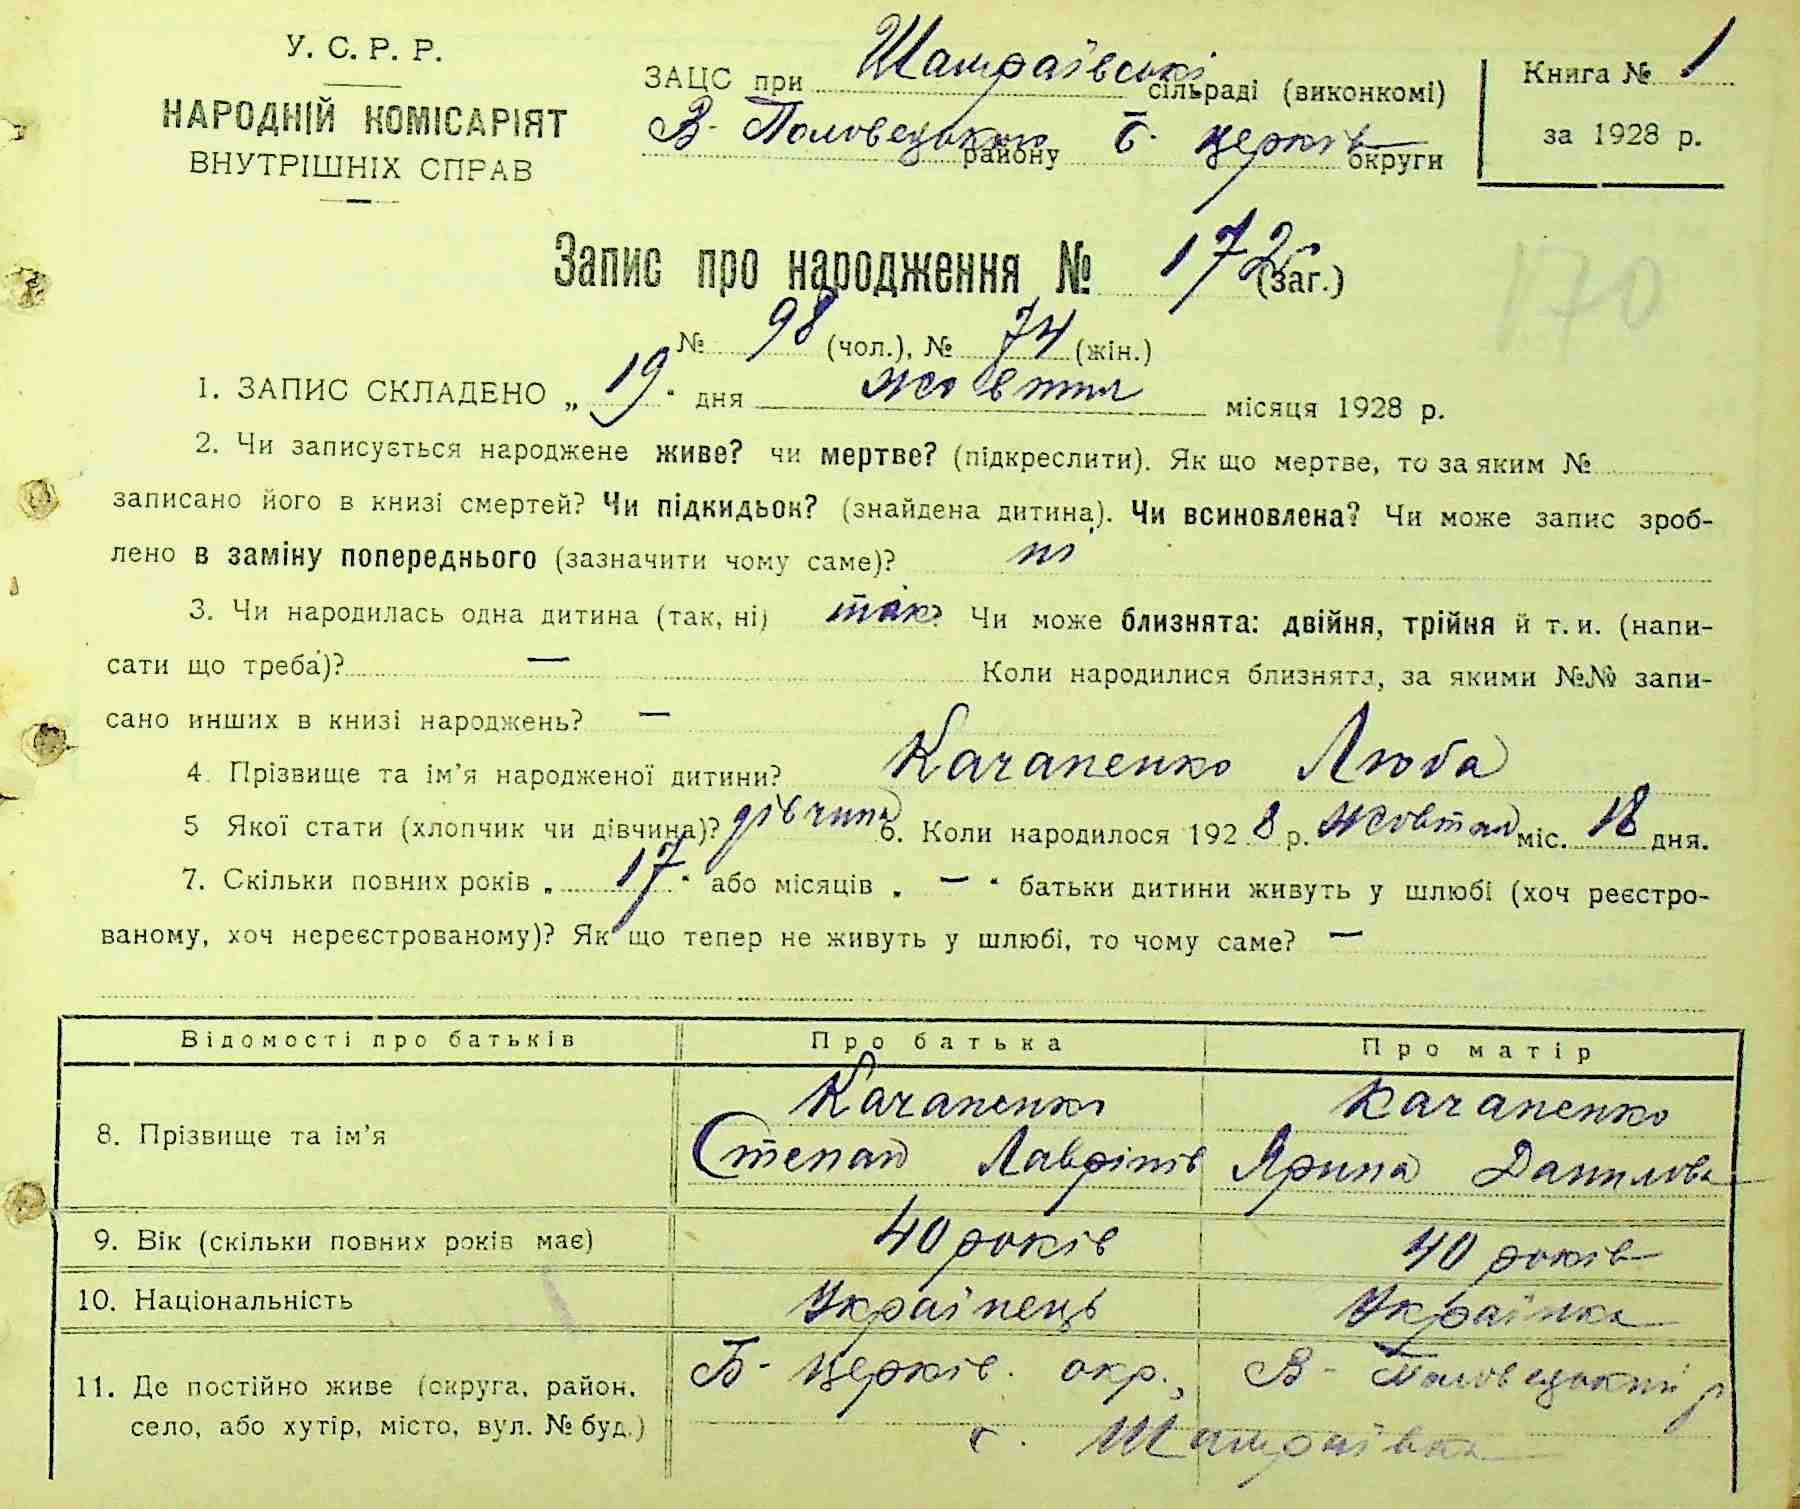 У. С. Р. Р.
НАРОДНІЙ КОМІСАРІЯТ
ВНУТРІШНІХ СПРАВ
ЗАЦС при Шамраївські сільраді (виконкомі)
В- Половецького району Б. церків округи
Книга № 1
за 1928 р.
Запис про народження № 172 (заг.)
170
№ 98 (чол.), № 74 (жін.)
1. ЗАПИС СКЛАДЕНО „ 19 " дня жовтня місяця 1928 р.
2. Чи записується народжене живе? чи мертве? (підкреслити). Як що мертве, то за яким №
записано його в книзі смертей? Чи підкидьок? (знайдена дитина). Чи всиновлена? Чи може запис зроб-
лено в заміну попереднього (зазначити чому саме)? ні
3. Чи народилась одна дитина (так, ні) так? Чи може близнята: двійня, трійня й т. и. (напи-
сати що треба)? — Коли народилися близнята, за якими №№ запи-
сано инших в книзі народжень? —
4. Прізвище та ім'я народженої дитини? Качаненко Люба
5 Якої стати (хлопчик чи дівчина)? дівчина 6. Коли народилося 1928 р. жовтня міс. 18 дня.
7. Скільки повних років „ 17 " або місяців „ — " батьки дитини живуть у шлюбі (хоч реєстро-
ваному, хоч нереєстрованому)? Як що тепер не живуть у шлюбі, то чому саме? —
Відомості про батьків Про батька Про матір
8. Прізвище та ім'я
Качаненко
Степан Лаврінів
Качаненко
Ярина Данилова
9. Вік (скільки повних років має) 40 років 40 років
10. Національність Українець Українка
11. Де постійно живе (округа, район,
село, або хутір, місто, вул. № буд.)
Б- церків. окр., В- Половецький р
с. Шамраївка